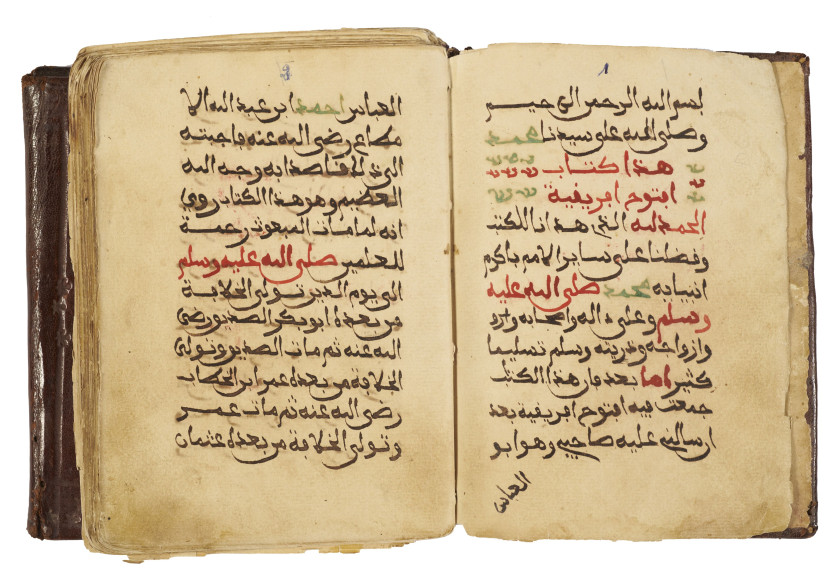 ١
بسم الله الرحمن الرحيم
وصلى الله على سيدنا محمد
هذا كتاب
افتوح افريقية
الحمد لله الذي هدانا للكتب
وفضلنا على ساير الامم باكرم
انبيايه محمد صلى الله عليه
وسلم وعلى ءاله واصحابه
وازواجه وذريته وسلم تسليما
كثيرا اما بعد فان هذا الكتب
جمعت فيه افتوح افريقية بعد
ارسالني عليه صاحبي وهو ابو
العباس
العباس احمد ابن عبد الله الا
رضي الله عنه فاجبته
الى ذلك قاصدا به وجه الله
العظيم وهو هذا الكتاب روي
انه لما مات المبعوث رحمة
للعلمين صلى الله عليه وسلم
الى يوم الدين تولى الخلافة
من بعده ابو بكر الصديق رضي
الله عنه ثم مات الصديق وتولى
الخلافة من بعده عمر ابن الخطاب
رضي الله عنه ثم مات عمر
وتولى الخلافة من بعده عثمان